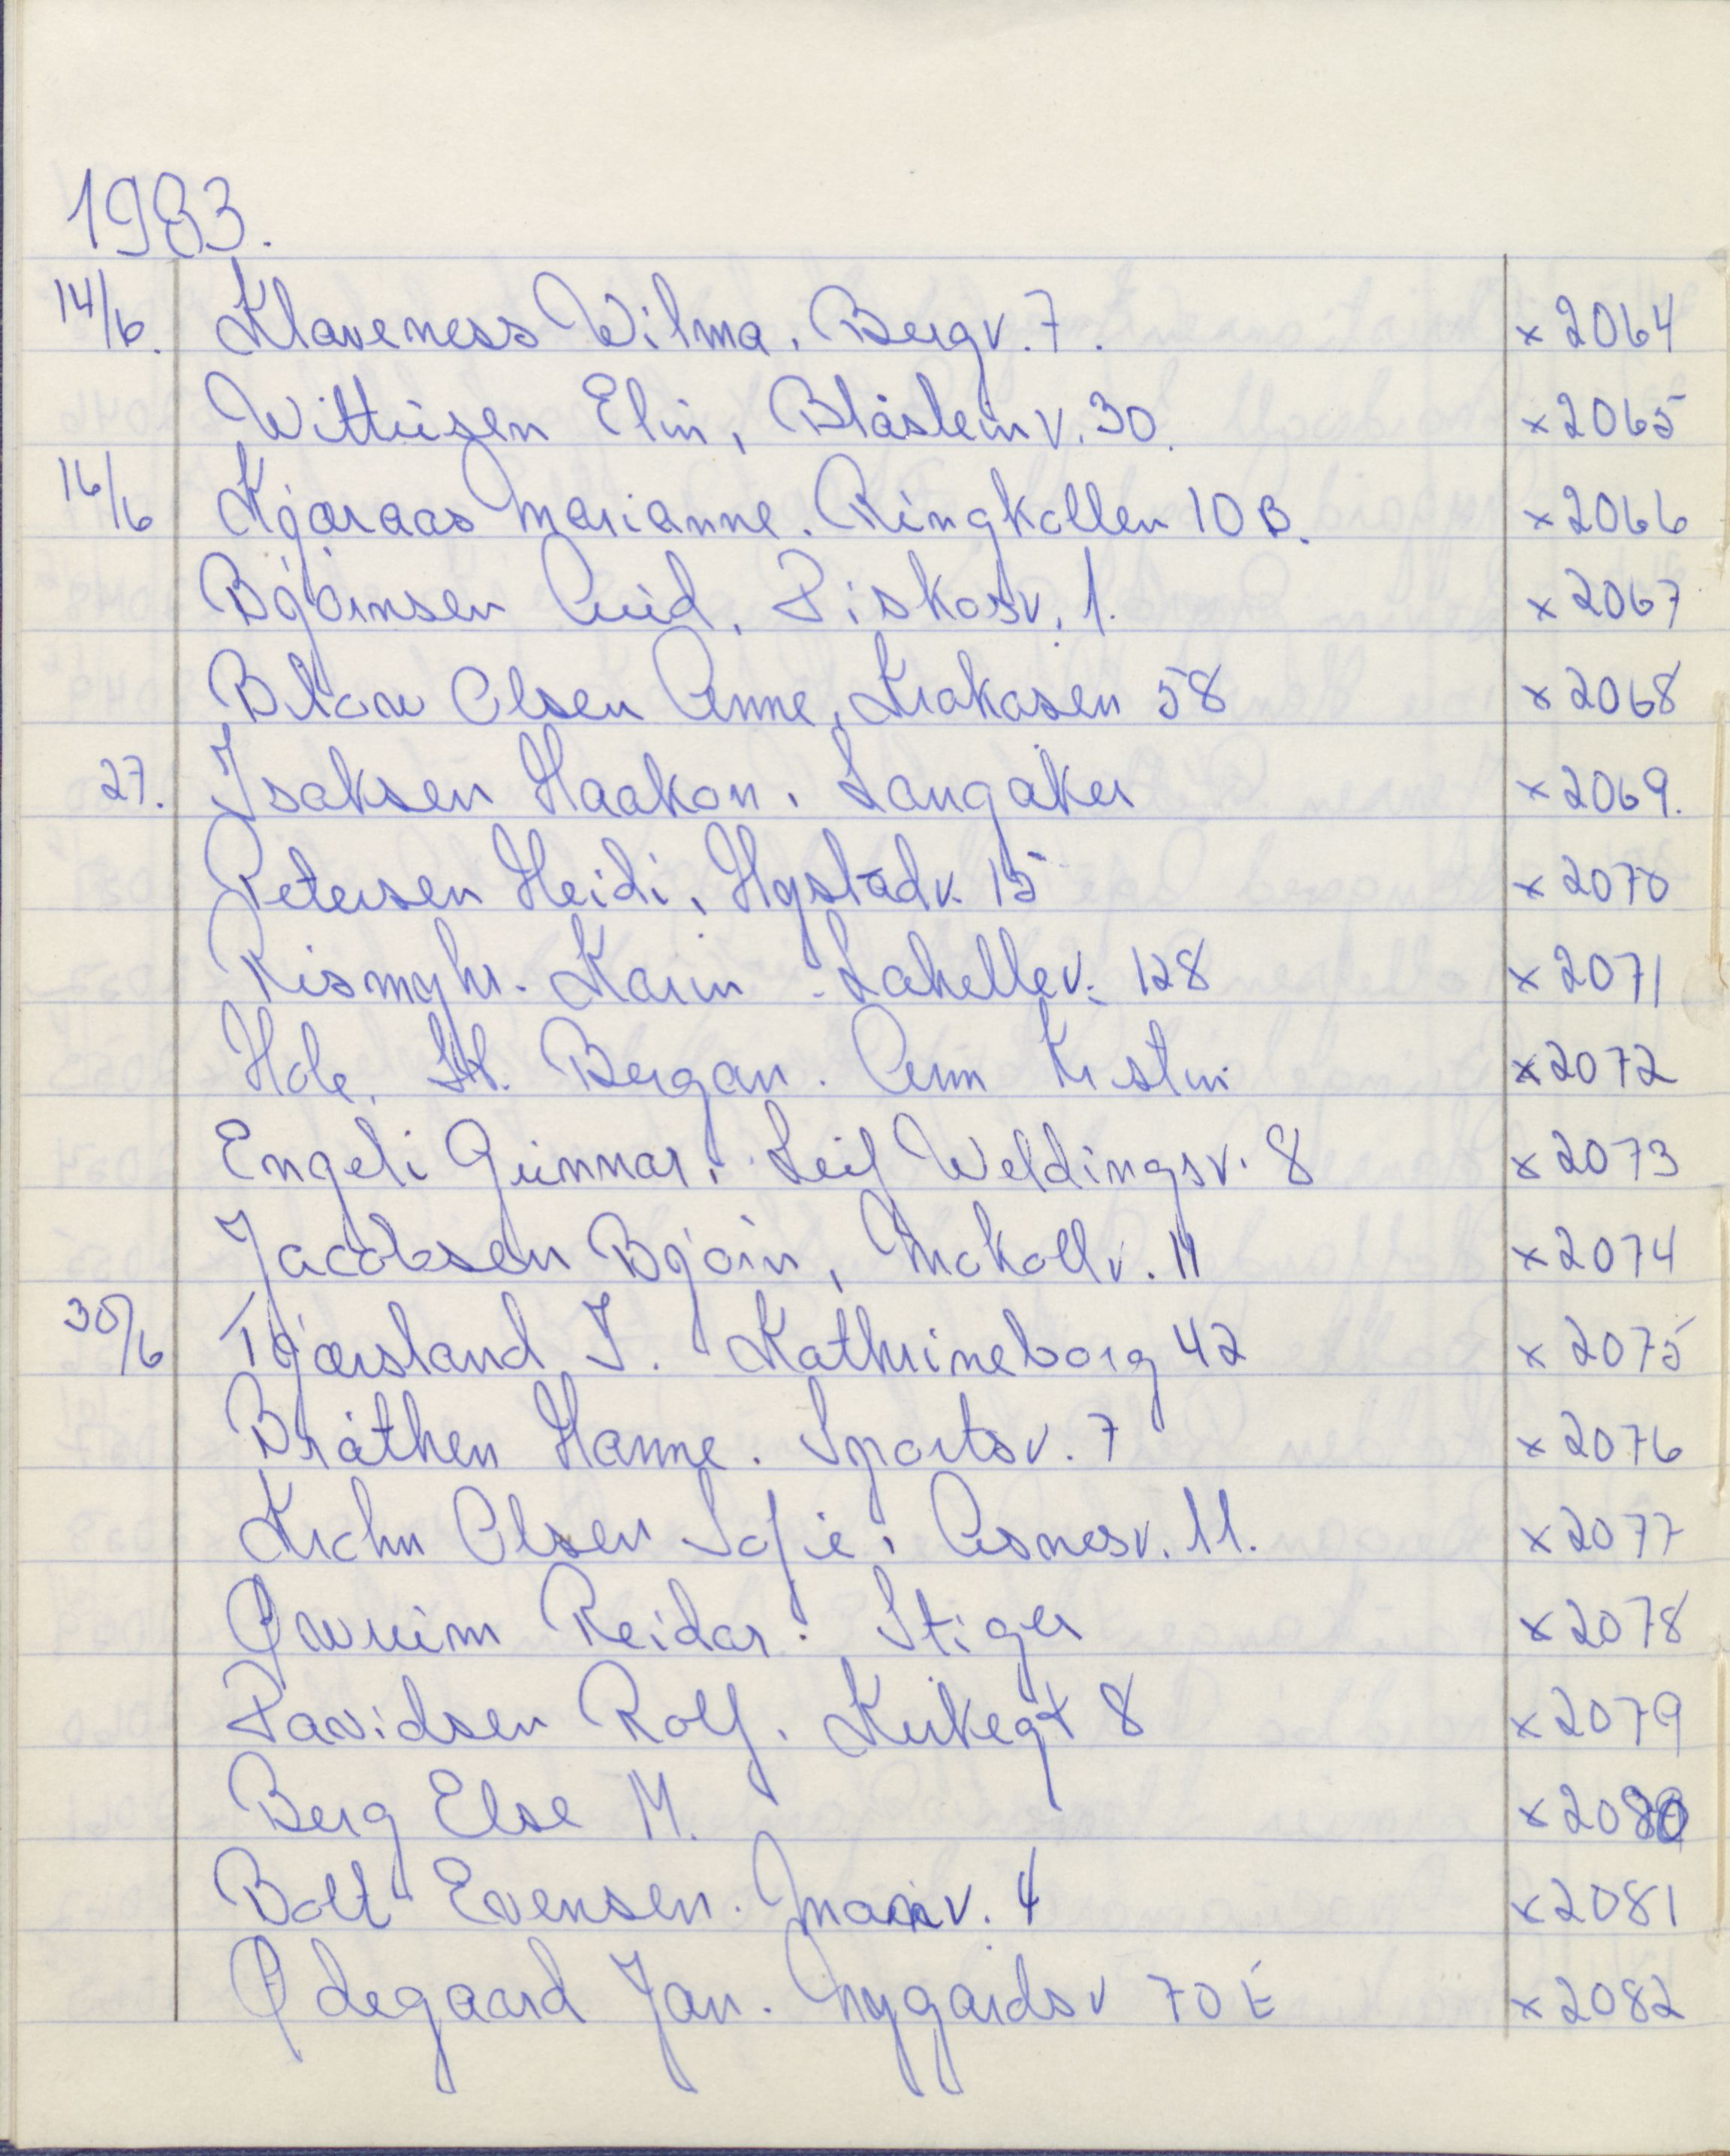 1983.
14/6. Klaveness Wilma. Bergv. 7. x 2064
Wittusen Elin, Blåsteinv. 30. x 2065
16/6 Kjæraas Marianne. Ringkollen 10 B. x 2066
Bjørnsen Aud, Fiskarv. 1. x 2067
Olsen Anne, Krakasen 58 x 2068
27. Isaksen Haakon, Langåker x 2069.
Petersen Heidi, Hystadv. 15 x 2070
Rismyhr. Karin Lahellev. 128 x 2071
Hole, St. Bergan. Ann Kristin x 2072
Engeli Gunnar, Leif Weldingsv. 8 x 2073
Jacobsen Bjørn, Mokollv. 11 x 2074
30/6 Tjærsland J. Kathrineborg 42 x 2075
Bråthen Hanne. Sportsv. 7 x 2076
Krohn Olsen Sofie, Asnesv. 11. x 2077
Reidar. Stiger x 2078
Davidsen Rolf. Kirkegt 8 x 2079
Berg Else M. x 2080
Bolt Evensen. v. 4 x 2081
Ødegaard Jan. Nygårdsv 70 E x 2082